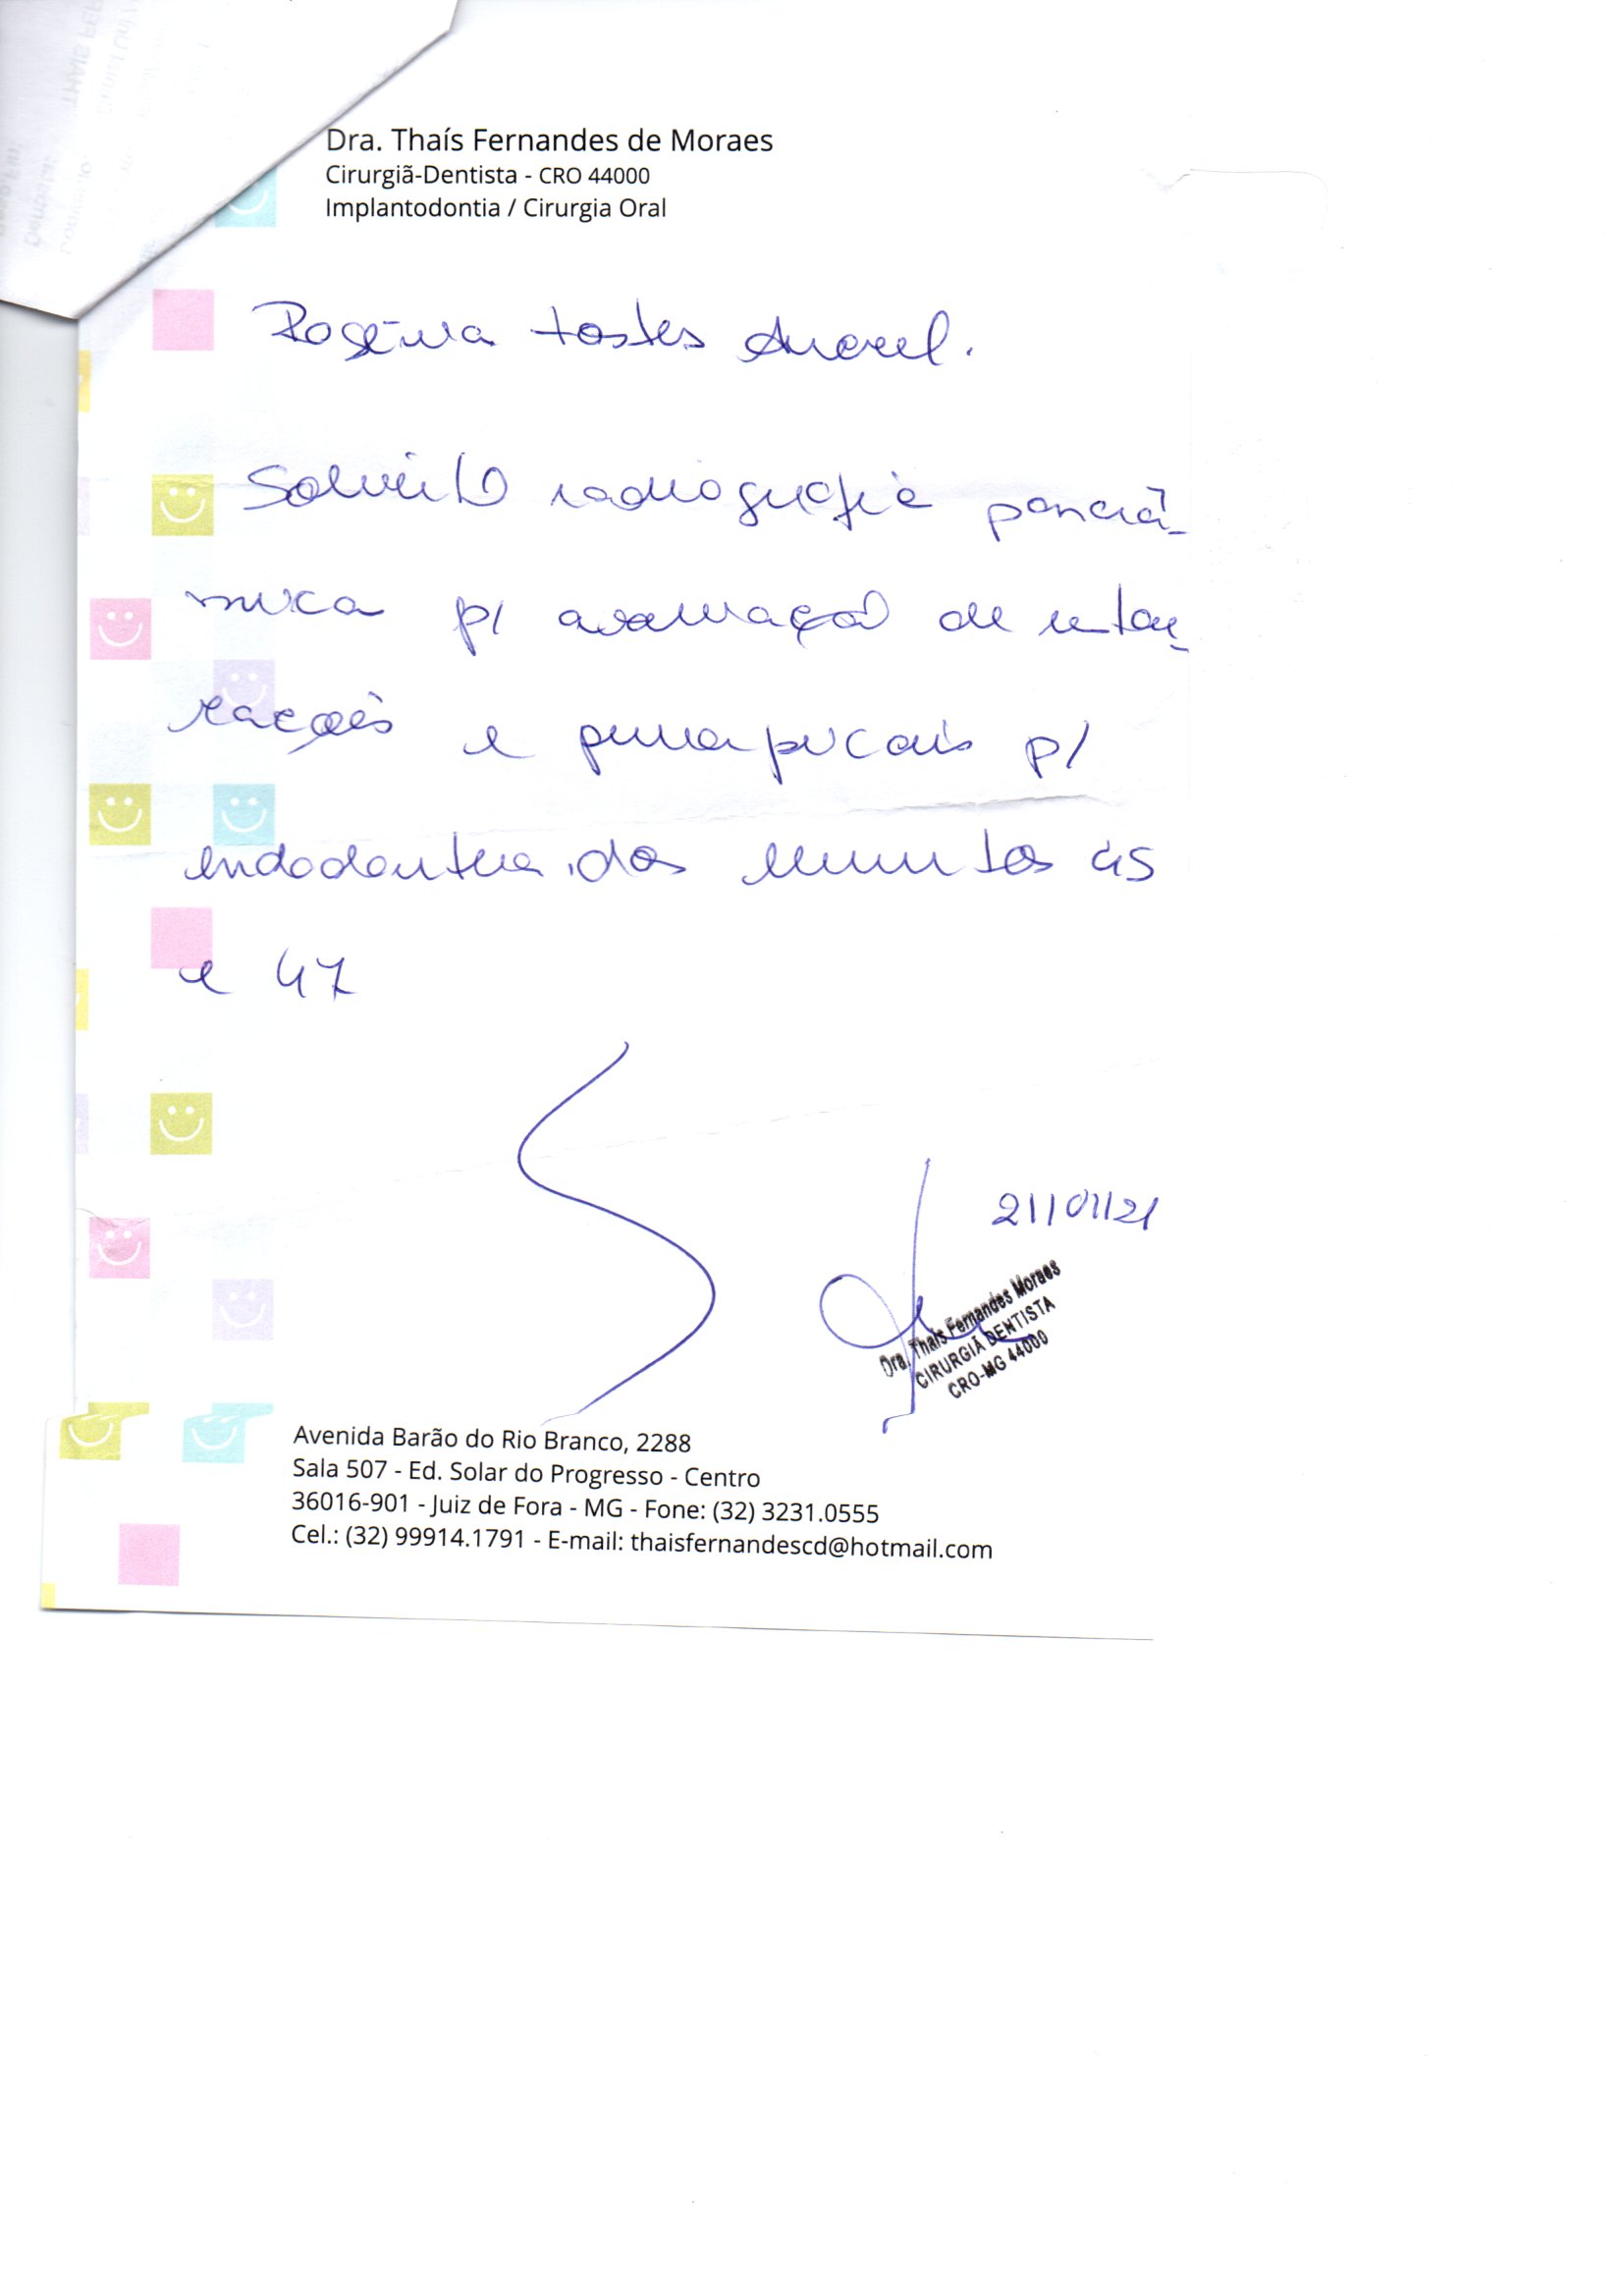 Dra. Thaís Fernandes de Moraes
Cirurgiã-Dentista - CRO 44000
Implantodontia / Cirurgia Oral
tostes
Solicito radiografia panorâ-
mica p/ avaliação de restau-
rações e periapicais p/
endodontia dos elementos 45
e 47
21/01/21
Dra. Thaís Fernandes Moraes
CIRURGIÃ DENTISTA
CRO-MG 44000
Avenida Barão do Rio Branco, 2288
Sala 507 - Ed. Solar do Progresso - Centro
36016-901 - Juiz de Fora - MG - Fone: (32) 3231.0555
Cel.: (32) 99914.1791 - E-mail: thaisfernandescd@hotmail.com